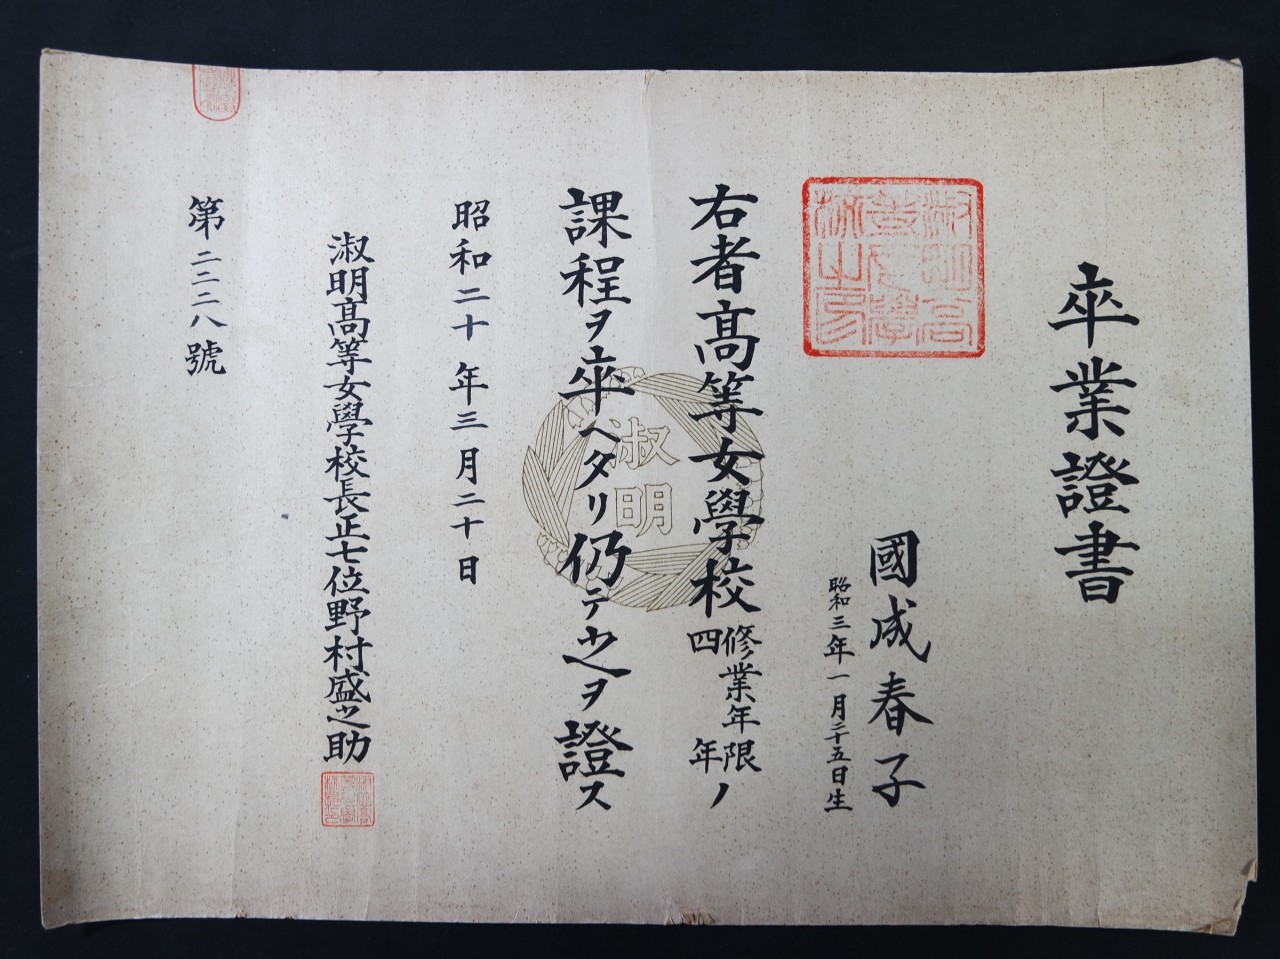 卒業證書
國成春子
昭和三年一月二十五日生
右者高等女學校修業年限四年ノ
課程ヲ卒ヘタリ仍テ之ヲ證ス
昭和二十年三月二十日
淑明高等女學校長正七位野村盛之助
第二二二八號
淑明